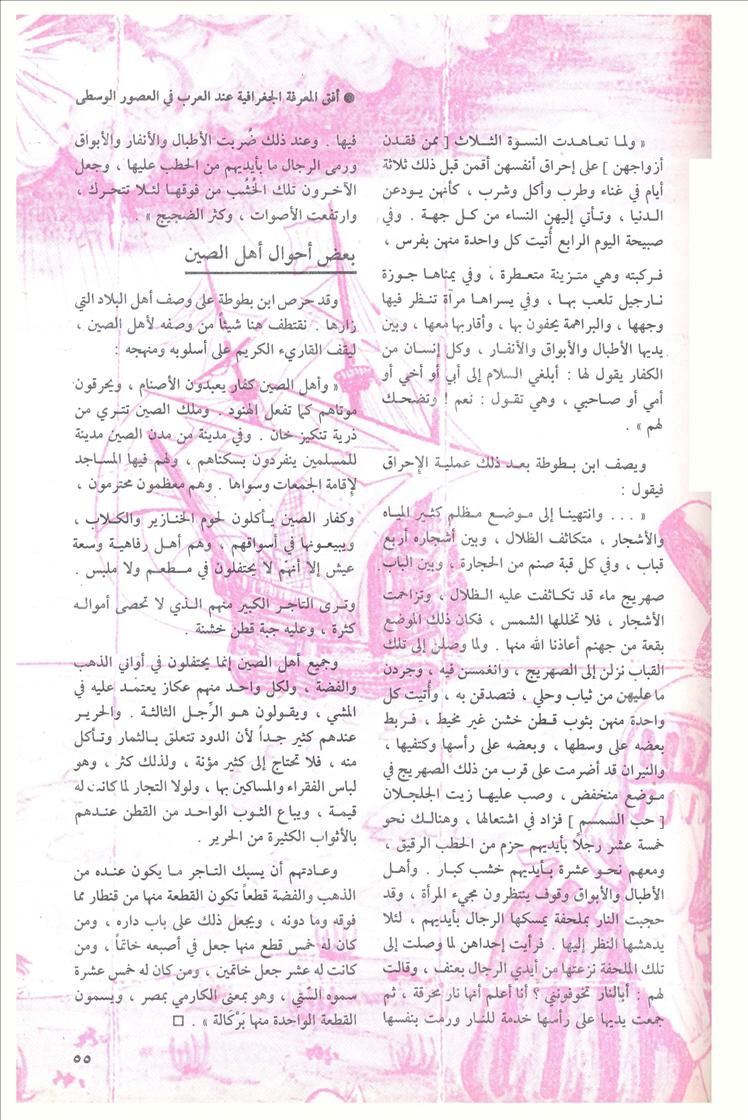 ● أفق المعرفة الجغرافية عند العرب في العصور الوسطى
« ولما تعاهدت النسوة الثلاث [ ممن فقدن
أزواجهن ] على إحراق أنفسهن أقمن قبل ذلك ثلاثة
أيام في غناء وطرب وأكل وشرب ، كأنهن يودعن
الدنيا ، وتأتي إليهن النساء من كل جهة . وفي
صبيحة اليوم الرابع أُتيت كل واحدة منهن بفرس ،
فركبته وهي متزينة متعطرة ، وفي يمناها جوزة
نارجيل تلعب بها ، وفي يسراها مرآة تنظر فيها
وجهها ، والبراهمة يحفون بها ، وأقاربها معها ، وبين
يديها الأطبال والأبواق والأنفار ، وكل إنسان من
الكفار يقول لها : أبلغي السلام إلى أبي أو أخي أو
أمي أو صاحبي ، وهي تقول : نعم ! وتضحك
لهم » .
ويصف ابن بطوطة بعد ذلك عملية الإحراق
فيقول :
« ... وانتهينا إلى موضع مظلم كثير المياه
والأشجار ، متكاثف الظلال ، وبين أشجاره أربع
قباب ، وفي كل قبة صنم من الحجارة ، وبين الباب
صهريج ماء قد تكاثفت عليه الظلال ، وتزاحمت
الأشجار ، فلا تخللها الشمس ، فكان ذلك الموضع
بقعة من جهنم أعاذنا الله منها . ولما وصلن إلى تلك
القباب نزلن إلى الصهريج ، وانغمسن فيه ، وجردن
ما عليهن من ثياب وحلي ، فتصدقن به ، وأُتيت كل
واحدة منهن بثوب قطن خشن غير مخيط ، فربط
بعضه على وسطها ، وبعضه على رأسها وكتفيها ،
والنيران قد أضرمت على قرب من ذلك الصهريج في
موضع منخفض ، وصب عليها زيت الجلجلان
[ حب السمسم ] فزاد في اشتعالها ، وهنالك نحو
خمسة عشر رجلاً بأيديهم حزم من الحطب الرقيق ،
ومعهم نحو عشرة بأيديهم خشب كبار . وأهل
الأطبال والأبواق وقوف ينتظرون مجيء المرأة ، وقد
حجبت النار بملحفة يمسكها الرجال بأيديهم ، لئلا
يدهشها النظر إليها . فرأيت إحداهن لما وصلت إلى
تلك الملحفة نزعتها من أيدي الرجال بعنف ، وقالت
لهم : أبالنار تخوفونني ؟ أنا أعلم أنها نار محرقة ، ثم
جمعت يديها على رأسها خدمة للنار ورمت بنفسها
فيها . وعند ذلك ضُربت الأطبال والأنفار والأبواق
ورمى الرجال ما بأيديهم من الحطب عليها ، وجعل
الآخرون تلك الخُشُب من فوقها لئلا تتحرك ،
وارتفعت الأصوات ، وكثر الضجيج » .
بعض أحوال أهل الصين
وقد حرص ابن بطوطة على وصف أهل البلاد التي
زارها . نقتطف هنا شيئاً من وصفه لأهل الصين ،
ليقف القاريء الكريم على أسلوبه ومنهجه :
« وأهل الصين كفار يعبدون الأصنام ، ويحرقون
موتاهم كما تفعل الهنود . وملك الصين تتري من
ذرية تنكيز خان . وفي مدينة من مدن الصين مدينة
للمسلمين ينفردون بسكناهم ، ولهم فيها المساجد
لإقامة الجمعات وسواها . وهم معظمون محترمون ،
وكفار الصين يأكلون لحوم الخنازير والكلاب ،
ويبيعونها في أسواقهم ، وهم أهل رفاهية وسعة
عيش إلا أنهم لا يحتفلون في مطعم ولا ملبس .
وترى التاجر الكبير منهم الذي لا تحصى أمواله
كثرة ، وعليه جبة قطن خشنة .
وجميع أهل الصين إنما يحتفلون في أواني الذهب
والفضة ، ولكل واحد منهم عكاز يعتمد عليه في
المشي ، ويقولون هو الرِّجل الثالثة . والحرير
عندهم كثير جداً لأن الدود تتعلق بالثمار وتأكل
منه ، فلا تحتاج إلى كثير مؤنة ، ولذلك كثر ، وهو
لباس الفقراء والمساكين بها ، ولولا التجار لما كانت له
قيمة ، ويباع الثوب الواحد من القطن عندهم
بالأثواب الكثيرة من الحرير .
وعادتهم أن يسبك التاجر ما يكون عنده من
الذهب والفضة قطعاً تكون القطعة منها من قنطار مما
فوقه وما دونه ، ويجعل ذلك على باب داره ، ومن
كان له خمس قطع منها جعل في أصبعه خاتماً ، ومن
كانت له عشر جعل خاتمين ، ومن كان له خمس عشرة
سموه السَّتي ، وهو بمعنى الكارمي بمصر ، ويسمون
القطعة الواحدة منها بَرْكالة » . □
٥٥